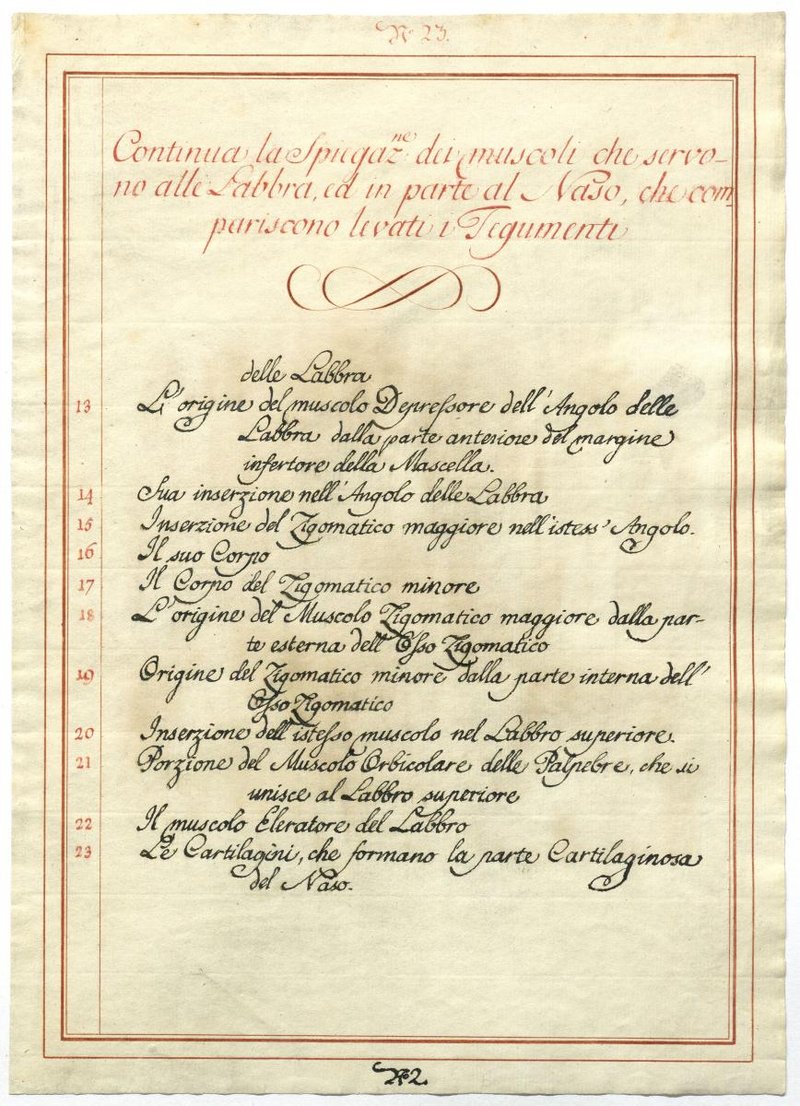 N.º 23.
Continua la Spiegaz.ne dei muscoli che servo-
no alle Labbra, ed in parte al Naso, che com-
pariscono levati i Tegumenti
delle Labbra
13 L'origine del muscolo Depressore dell'Angolo delle
Labbra dalla parte anteriore del margine
inferiore della Mascella.
14 Sua inserzione nell'Angolo delle Labbra
15 Inserzione del Zigomatico maggiore nell'istess' Angolo.
16 Il suo Corpo
17 Il Corpo del Zigomatico minore
18 L'origine del Muscolo Zigomatico maggiore dalla par-
te esterna dell'Osso Zigomatico
19 Origine del Zigomatico minore dalla parte interna dell'
Osso Zigomatico
20 Inserzione dell'istesso muscolo nel Labbro superiore.
21 Porzione del Muscolo Orbicolare delle Palpebre, che si
unisce al Labbro superiore
22 Il muscolo Elevatore del Labbro
23 Le Cartilagini, che formano la parte Cartilaginosa
del Naso.
N.º 2.